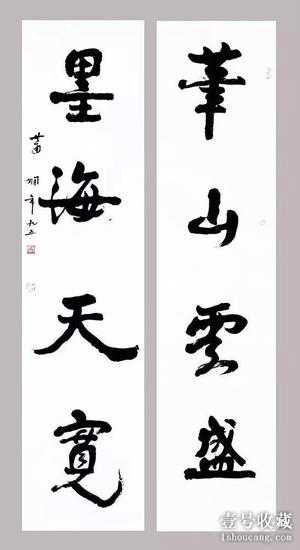 筆山雲盛
墨海天寬
蕭嫻年九五
壹号收藏
1shoucang.com